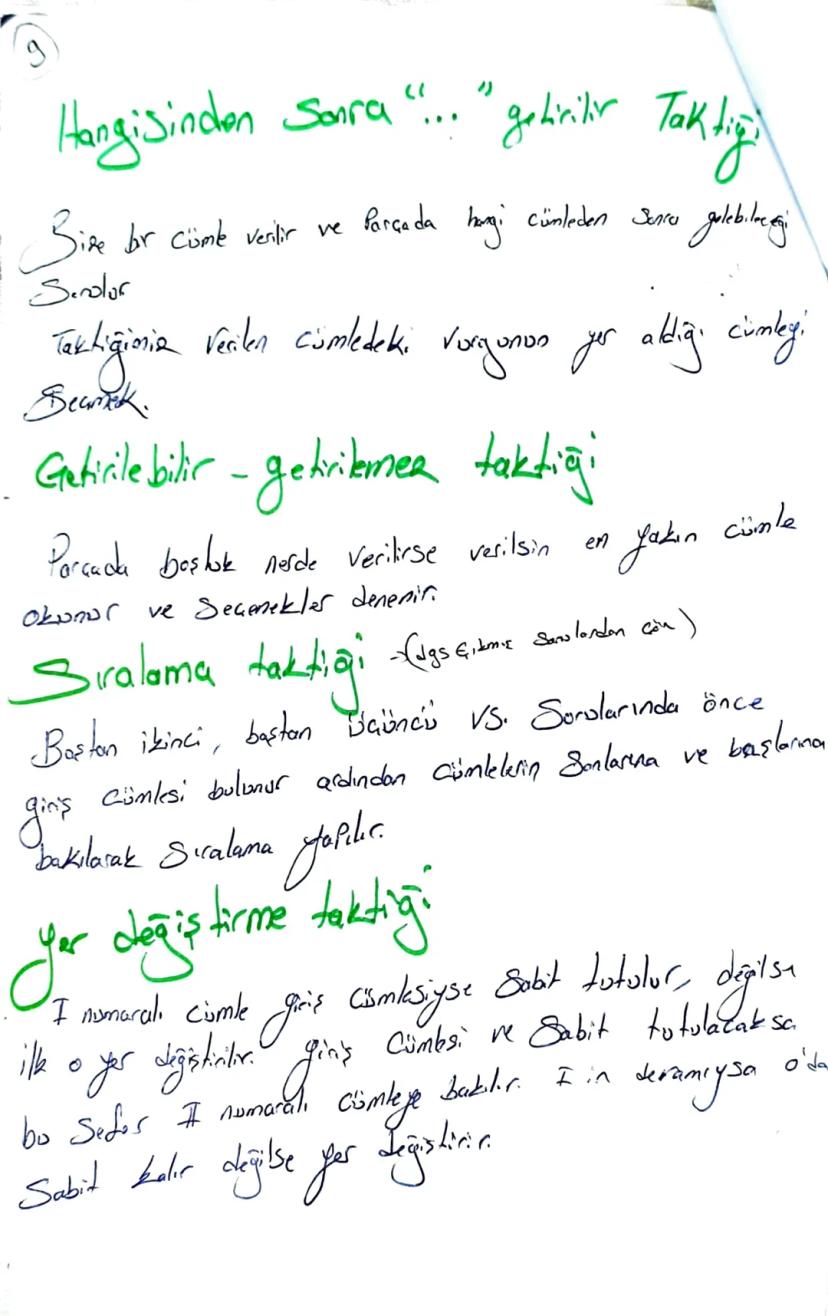 9
Hangisinden Sonra "..." getirilir Taktiği
Bize bir cümle verilir ve Parçada hangi cümleden sonra gelebileceği
Sorulur
Taktiğimiz Verilen cümledeki Vurgunun yer aldığı cümleyi
Seçmek.
Getirilebilir - getirilemez taktiği
Parçada boşluk nerde verilirse verilsin en yakın cümle
okunur ve Seçenekler denenir.
Sıralama taktiği → (dgs çıkmış sorulardan çöz)
Baştan ikinci, baştan üçüncü vs. Sorularında önce
giriş cümlesi bulunur ardından cümlelerin Sonlarına ve başlarına
bakılarak Sıralama yapılır.
Yer değiştirme taktiği
I numaralı cümle giriş cümlesiyse Sabit tutulur, değilse
ilk o yer değiştirilir. giriş cümlesi ve Sabit tutulacaksa
bu Sefer II numaralı cümleye bakılır. I in devamıysa o'da
Sabit kalır değilse yer değiştirir.